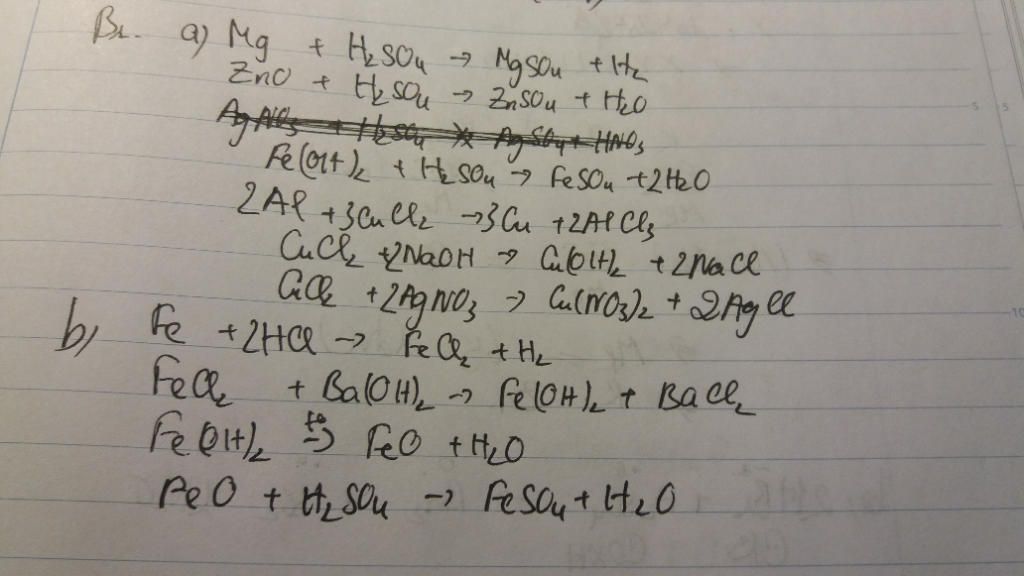 B1. a) Mg + H₂SO₄ → MgSO₄ + H₂
ZnO + H₂SO₄ → ZnSO₄ + H₂O
AgNO₃ + H₂SO₄ ↛ AgSO₄ + HNO₃
Fe(OH)₂ + H₂SO₄ → FeSO₄ + 2H₂O
2Al + 3CuCl₂ → 3Cu + 2AlCl₃
CuCl₂ + 2NaOH → Cu(OH)₂ + 2NaCl
CuCl₂ + 2AgNO₃ → Cu(NO₃)₂ + 2AgCl
b) Fe + 2HCl → FeCl₂ + H₂
FeCl₂ + Ba(OH)₂ → Fe(OH)₂ + BaCl₂
Fe(OH)₂ →(t°) FeO + H₂O
FeO + H₂SO₄ → FeSO₄ + H₂O